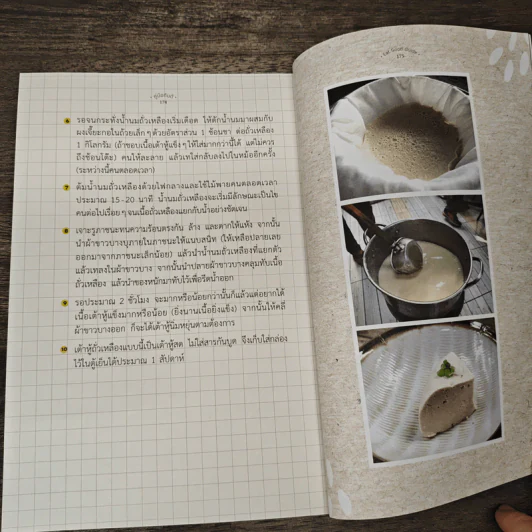 คู่มือกินดี
178
6 รอจนกระทั่งน้ำนมถั่วเหลืองเริ่มเดือด ให้ตักน้ำนมมาผสมกับ
ผงเจี๊ยะกอในถ้วยเล็กๆ ด้วยอัตราส่วน 1 ช้อนชา ต่อถั่วเหลือง
1 กิโลกรัม (ถ้าชอบเนื้อเต้าหู้แข็งๆ ให้ใส่มากกว่านี้ได้ แต่ไม่ควร
ถึงช้อนโต๊ะ) คนให้ละลาย แล้วเทใส่กลับลงไปในหม้ออีกครั้ง
(ระหว่างนี้คนตลอดเวลา)
7 ต้มน้ำนมถั่วเหลืองด้วยไฟกลางและใช้ไม้พายคนตลอดเวลา
ประมาณ 15-20 นาที น้ำนมถั่วเหลืองจะเริ่มมีลักษณะเป็นไข
คนต่อไปเรื่อยๆ จนเนื้อถั่วเหลืองแยกกับน้ำอย่างชัดเจน
8 เจาะรูภาชนะทนความร้อนตรงก้น ล้าง และตากให้แห้ง จากนั้น
นำผ้าขาวบางบุภายในภาชนะให้แนบสนิท (ให้เหลือปลายเลย
ออกมาจากภาชนะเล็กน้อย) แล้วนำน้ำนมถั่วเหลืองที่แยกตัว
แล้วเทลงในผ้าขาวบาง จากนั้นนำปลายผ้าขาวบางคลุมทับเนื้อ
ถั่วเหลือง แล้วนำของหนักมาทับไว้เพื่อรีดน้ำออก
9 รอประมาณ 2 ชั่วโมง จะมากหรือน้อยกว่านั้นก็แล้วแต่อยากได้
เนื้อเต้าหู้แข็งมากหรือน้อย (ยิ่งนานเนื้อยิ่งแข็ง) จากนั้นให้คลี่
ผ้าขาวบางออก ก็จะได้เต้าหู้นิ่มหยุ่นตามต้องการ
10 เต้าหู้ถั่วเหลืองแบบนี้เป็นเต้าหู้สด ไม่ใส่สารกันบูด จึงเก็บใส่กล่อง
ไว้ในตู้เย็นได้ประมาณ 1 สัปดาห์
175